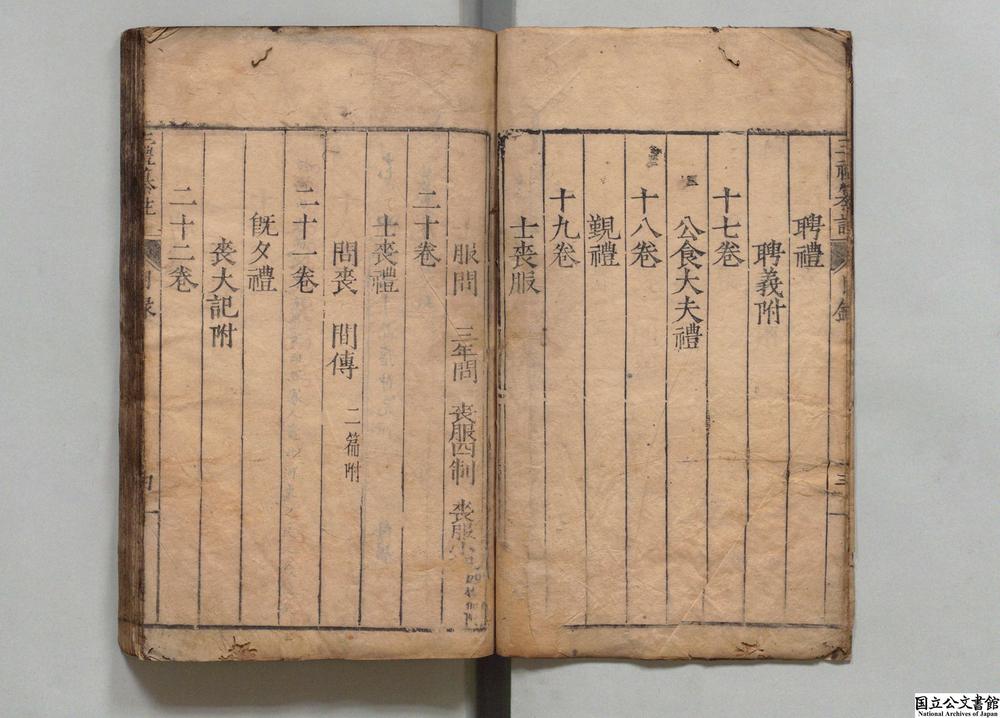 聘禮
聘義附
十七卷
公食大夫禮
十八卷
覲禮
十九卷
士喪服
服問 三年問 喪服四制 喪服小
二十卷
士喪禮
問喪 間傳 二篇附
二十一卷
旣夕禮
喪大記附
二十二卷
三禮
目錄
三
目錄
四
国立公文書館
National Archives of Japan